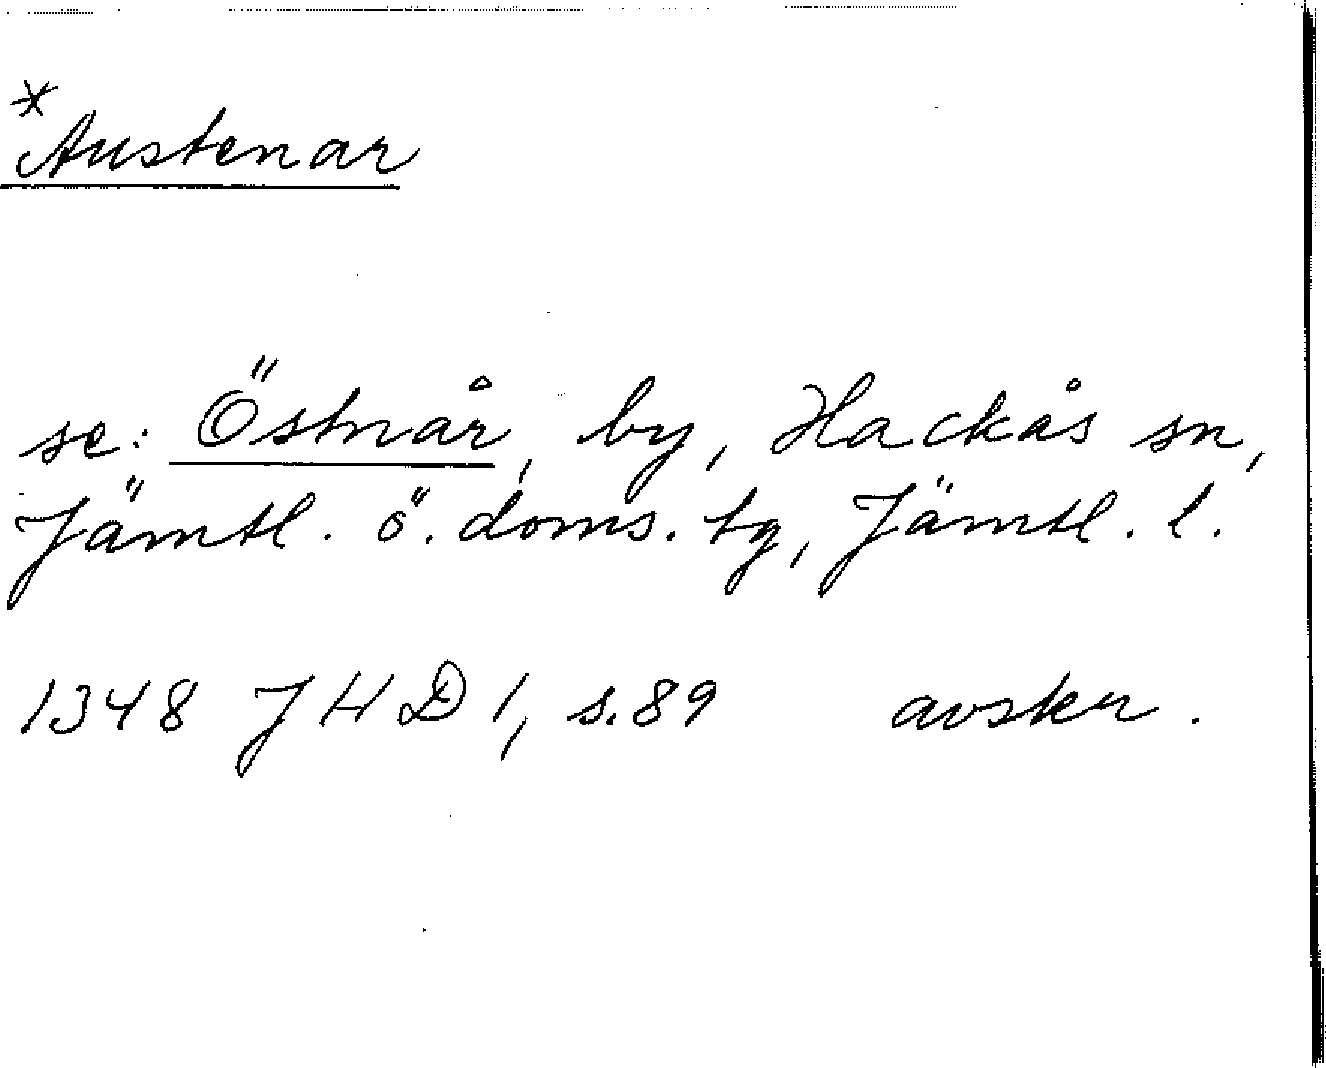 *Austenar
se: Östnår, by, Hackås sn,
Jämtl. ö. doms. tg, Jämtl. l.
1348 JHD 1, s. 89 avskr.